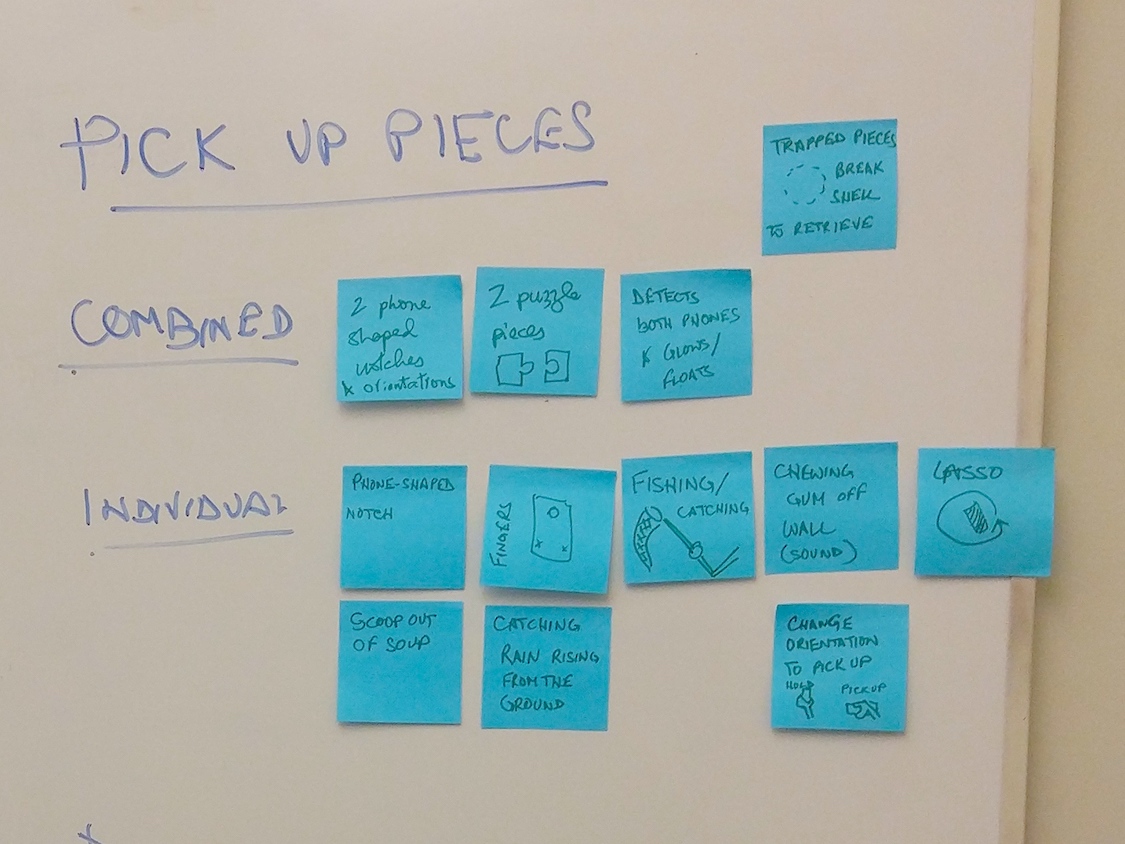 PICK UP PIECES
TRAPPED PIECES
BREAK
SHELL
TO RETRIEVE
COMBINED
2 phone
shaped
notches
& orientations
2 puzzle
pieces
DETECTS
BOTH PHONES
& GLOWS/
FLOATS
INDIVIDUAL
PHONE-SHAPED
NOTCH
FINGERS
FISHING/
CATCHING
CHEWING
GUM OFF
WALL
(SOUND)
LASSO
SCOOP OUT
OF SOUP
CATCHING
RAIN RISING
FROM THE
GROUND
CHANGE
ORIENTATION
TO PICK UP
HOLD
PICK UP